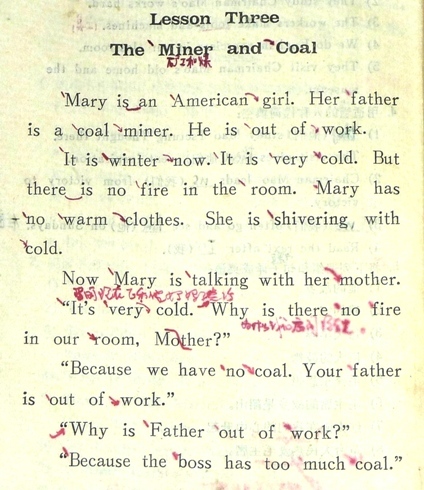 Lesson Three
The Miner and Coal
Mary is an American girl. Her father
is a coal miner. He is out of work.
It is winter now. It is very cold. But
there is no fire in the room. Mary has
no warm clothes. She is shivering with
cold.
Now Mary is talking with her mother.
"It's very cold. Why is there no fire
in our room, Mother?"
"Because we have no coal. Your father
is out of work."
"Why is Father out of work?"
"Because the boss has too much coal."